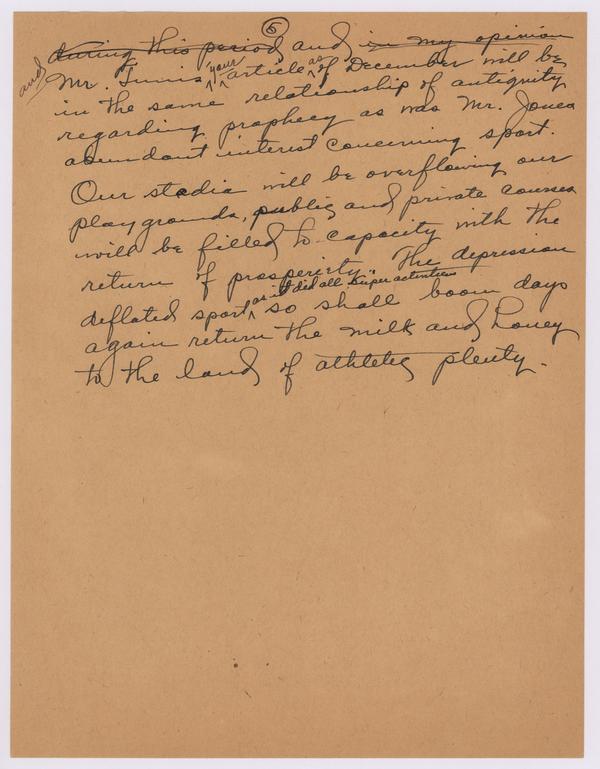 6
during this period and in my opinion
and Mr. Tunis, your article as of December will be
in the same relationship of antiquity
regarding prophecy as was Mr. Jones
abundant interest concerning sport.
Our stadia will be overflowing our
playgrounds, public and private courses
will be filled to capacity with the
return of prosperiety. The depression
as it did all "super activities"
deflated sport so shall boom days
again return the milk and honey
to the land of athletic plenty.